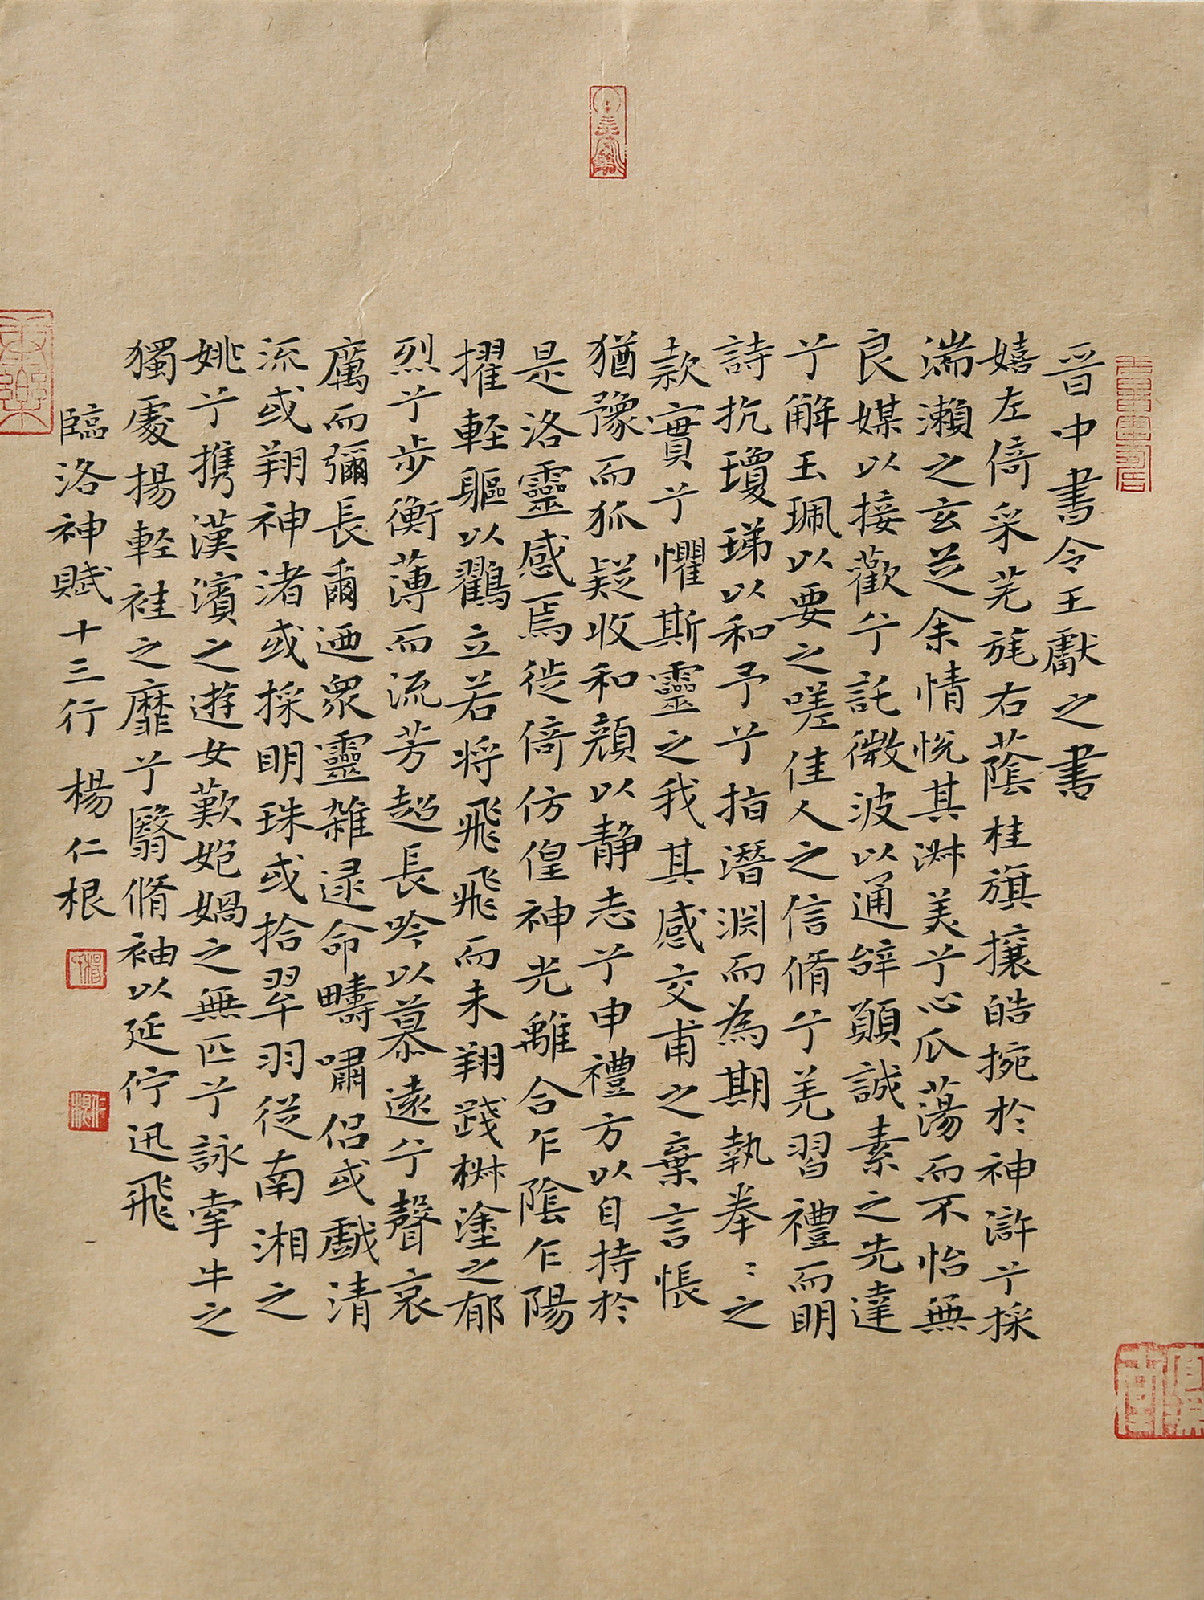 晉中書令王獻之書
嬉左倚采芜旄右蔭桂旗攘皓捥於神滸兮採
湍瀨之玄芝余情悦其淋美兮心瓜蕩而不怡無
良媒以接歡兮託微波以通辝願誠素之先達
兮解玉珮以要之嗟佳人之信脩兮羌習禮而明
詩抗瓊珶以和予兮指潛淵而為期執拳〻之
款實兮懼斯靈之我其感交甫之棄言悵
猶豫而狐疑收和顏以静志兮申禮方以自持於
是洛靈感焉徙倚仿偟神光離合乍陰乍陽
擢軽軀以鶴立若将飛飛而未翔踐椒塗之郁
烈兮步衡薄而流芳超長吟以慕遠兮聲哀
厲而彌長爾迺眾靈雜遝命疇嘯侣或戲清
流或翔神渚或採明珠或拾翠羽従南湘之
姚兮携漢濱之遊女歎匏媧之無匹兮詠牽牛之
獨處揚軽袿之靡兮翳脩袖以延佇迅飛
臨洛神賦十三行 楊仁根